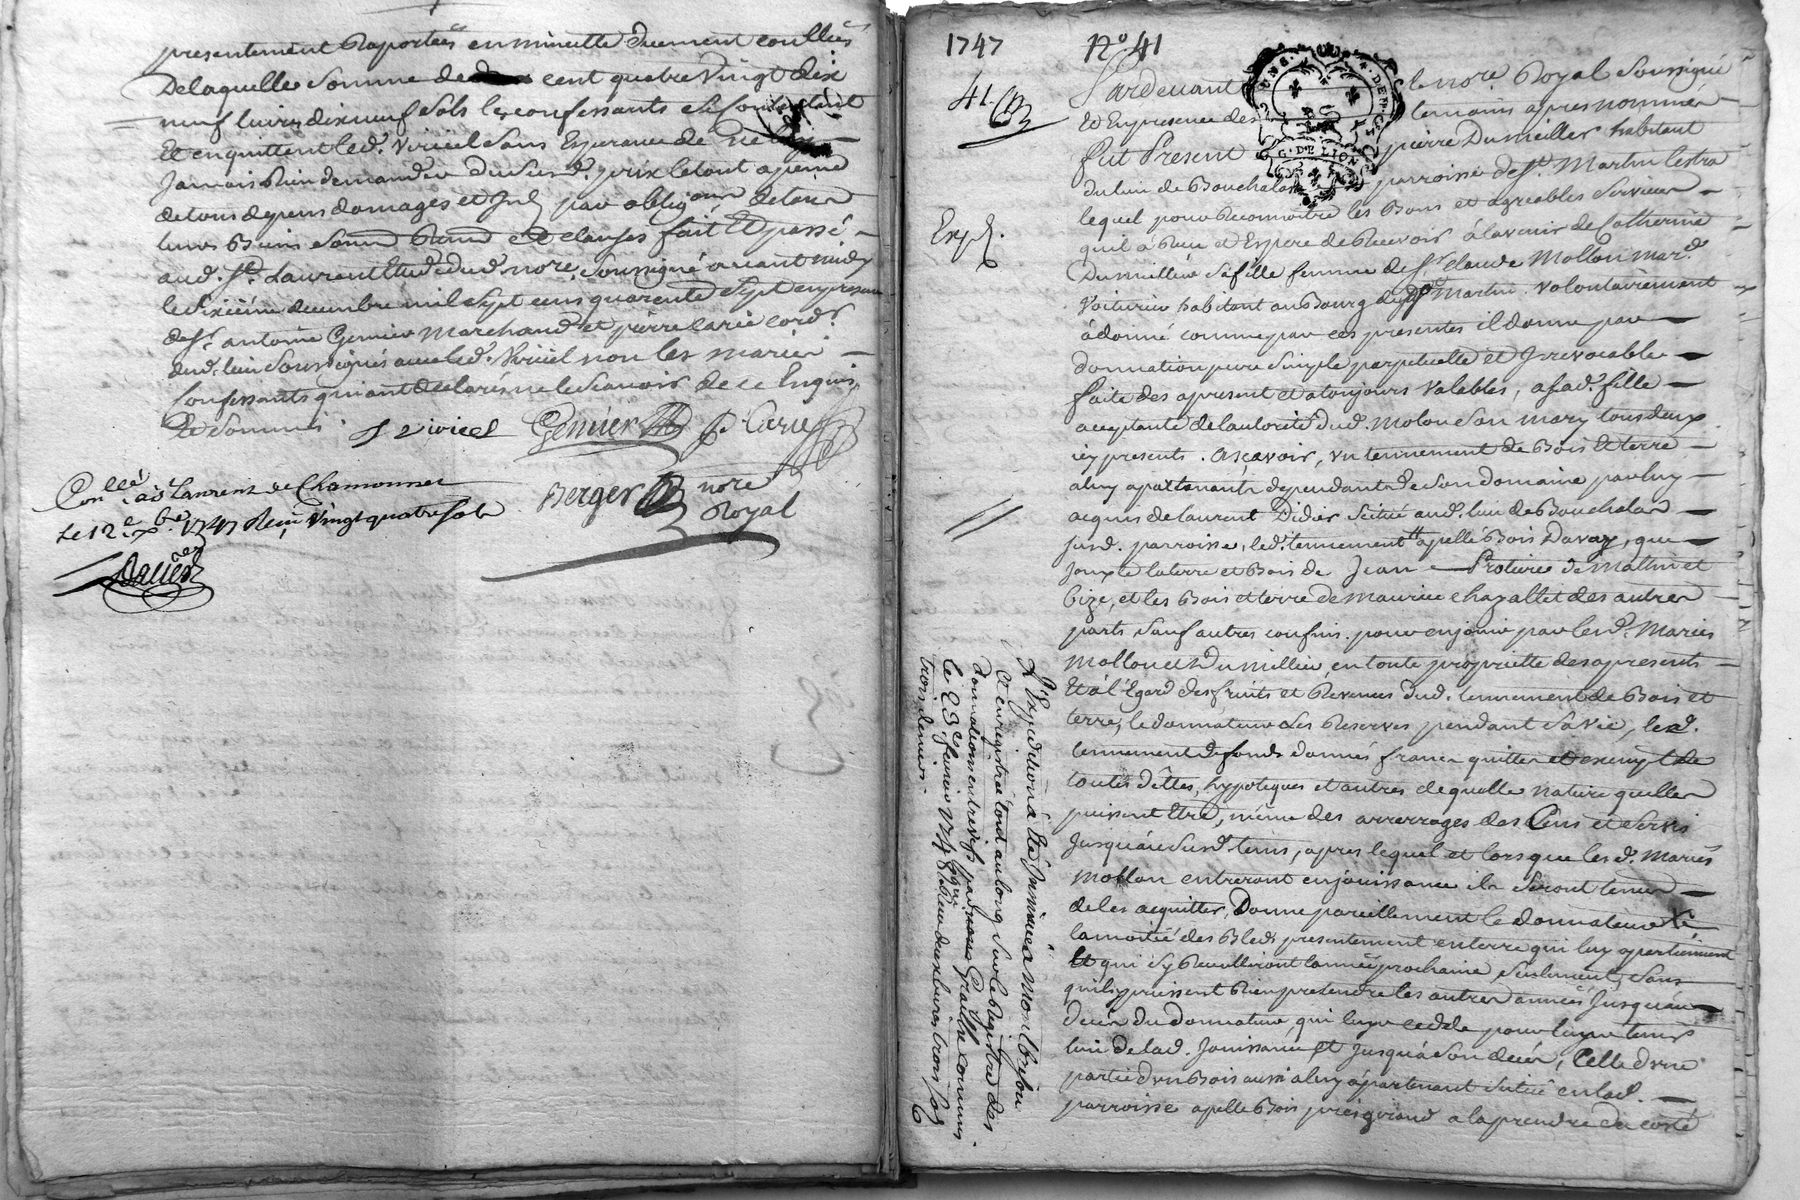 presentement Raportées en minutte duement controllées
De laquelle somme de cent quatre vingt dix
neuf livres dix neuf sols les confessants se contentent
Et en quittent led. Viricel sans Esperance de
Jamais Rien demander du susd. prix le tout a peine
de tous depens domages et par obligaon de tous
leurs Biens soum Renon et clauses fait Et passé
aud. St. Laurent Etude dud. nore. soussigné avant midy
le sixième decembre mil sept cens quarente sept en presence
de Sr. antoine Genier Marchand et pierre carie cordr.
dud. lieu soussignés avec led. Viricel non les mariés
confessants qui ont declaré ne le scavoir de ce Enquis
Et sommés J Viricel Genier P. Carie
Conllé. a St Laurens de Chamousset
Le 12e xbre 1747 Reçu vingt quatre sols
Berger nore
Royal
1747 No. 41
41
Pardevant le nore. Royal soussigné
Et En presence des temoins apres nommés
G. DE LION
fut Present pierre Dumillier habitant
du lieu de Bouchalan parroisse de St. Martin lestra
lequel pour Reconnoitre les Bons et agreables services
Expe.
quil a Recu et Espere de Recevoir a lavenir de Catherine
Dumillier sa fille femme de Sr. claude Mollon mard.
Voiturier habitant au Bourg dud. St Martin volontairement
à donné comme par ces presentes il donne par
donnation pure simple perpetuelle et Irrevocable
faite des a present et a toujours valables, a sad. fille
acceptante de lautorité dud. molon son mary tous deux
icy presents. Ascavoir, un tennement de Bois Et terre
a luy apartenants dependants de son domaine par luy
acquis de laurent Didier scitué aud. lieu de Bouchalan
susd. parroisse, led. tennement apellé Bois Davay, que
Jouxte la terre et Bois de Jean Protiere de matin et
bize, et les Bois et terre de maurice chazallet des autres
parts sauf autres confins. pour en jouir par lesd. Mariés
Mollon et Dumillier, en toute proprietté des a present
Et a l'Egard des fruits et Revenus dud. tennement de Bois et
terre, le donnateur Les Reserves pendant sa vie, led.
tennement de fonds donnés francs quittes et exempt de
toutes dettes, hypoteques et autres de quelle nature quelles
puissent Etre, même des arrerages des Cens et servis
Jusqu'au susd. tems, apres lequel et lorsque lesd. Mariés
Mollon entreront en jouissance ils seront tenus
de les acquitter, Donne pareillement le donnateur
la moitié des Bleds presentement en terre qui luy apartiennent
Et qui sy Recuilliront lannée prochaine seulement, sans
quils puissent Rien pretendre les autres années Jusquau
decés du donnateur qui leur cedde pour leur tenir
lieu de lad. Jouissance Et Jusqua son decés, Celle d'une
partie d'un Bois aussi a luy apartenant scitué en lad.
parroisse apellé Bois près grand a la prendre du costé
L'Expedition a Eté Insinuée a Montbrison
Et enregistrée tout au long sur le Registre des
donnations entre vifs par nous Graille commis
le 23e. fevrier 1748 Recu deux livres trois sols
trois deniers.